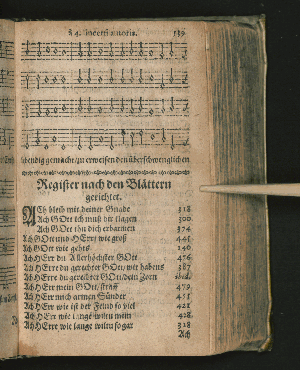 à 4. 139
bendig gemacht/zu erweisen den überschwenglichen
Register nach den Blättern
gerichtet.
ACh bleib mit deiner Gnade 318
Ach GOtt ich muß dir klagen 300
Ach GOtt thu dich erbarmen 374
Ach GOtt und HErr/ wie groß 441
Ach GOtt wie gehts 140
Ach HErr du Allerhöchster GOtt 476
Ach HErre du gerechter GOtt/ wir habens 387
Ach HErre du gerechter GOtt/ dein Zorn ibid.
Ach HErr mein GOtt/ straff 479
Ach HErr mich armen Sünder 451
Ach HErr wie ist der Feind so viel 421
Ach HErr wie lange wiltu mein 428
Ach HErre wie lange wiltu so gar 328
Ach